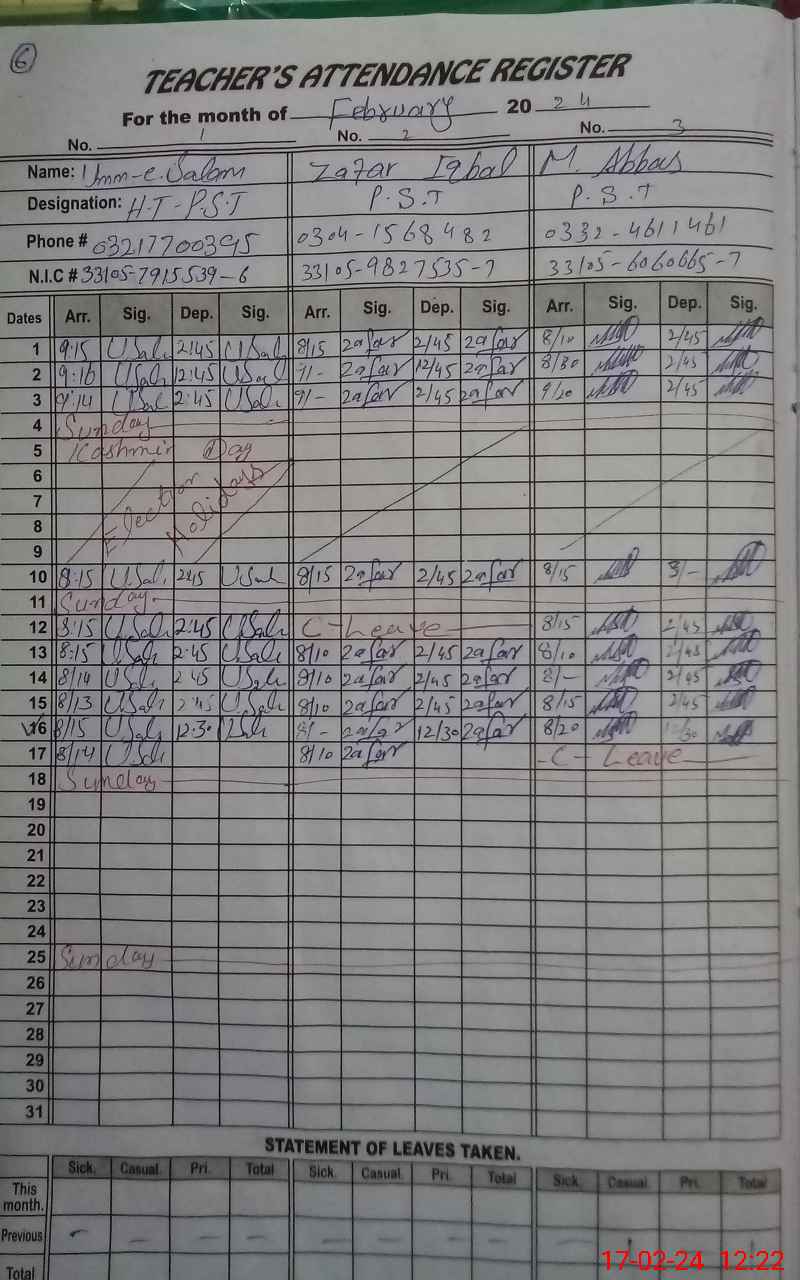 6
TEACHER'S ATTENDANCE REGISTER
For the month of February 20 24
No. 1 No. 2 No. 3
Name: Umm-e-Salam Zafar Iqbal M. Abbas
Designation: H.T-P.S.T P.S.T P.S.T
Phone # 03217700395 0304-1568482 0332-4611461
N.I.C # 33105-7915539-6 33105-9827535-7 33105-6060665-7
Dates Arr. Sig. Dep. Sig. Arr. Sig. Dep. Sig. Arr. Sig. Dep. Sig.
1 9:15 USalm 2:45 USalm 8/15 Zafar 2/45 Zafar 8/10 2/45
2 9:16 USalm 12:45 USalm 9/- Zafar 12/45 Zafar 8/30 2/45
3 9:14 USalm 2:45 USalm 9/- Zafar 2/45 Zafar 9/20 2/45
4 Sunday
5 Kashmir Day
6
7 Election Holidays
8
9
10 8:15 USalm 2:45 USalm 8/15 Zafar 2/45 Zafar 8/15 3/-
11 Sunday.
12 8:15 USalm 2:45 USalm C-Leave 8/15 2/45
13 8:15 USalm 2:45 USalm 8/10 Zafar 2/45 Zafar 8/10 2/45
14 8/14 USalm 2:45 USalm 8/10 Zafar 2/45 Zafar 8/- 2/45
15 8/13 USalm 2:45 USalm 8/10 Zafar 2/45 Zafar 8/15 2/45
16 8/15 USalm 12:30 USalm 8/- Zafar 12/30 Zafar 8/20 12/30
17 8/14 USalm 8/10 Zafar -C- Leave
18 Sunday
19
20
21
22
23
24
25 Sunday
26
27
28
29
30
31
STATEMENT OF LEAVES TAKEN.
Sick. Casual. Pri. Total Sick. Casual. Pri. Total Sick. Casual. Pri. Total
This month.
Previous - - - - - - - - - 1 - 1
Total
17-02-24 12:22